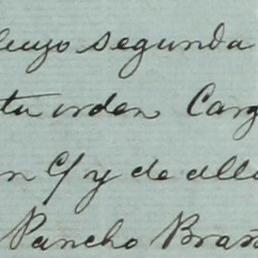 cuyo segunda
tu orden Carg
n C/ y de alla
Pancho Brañ